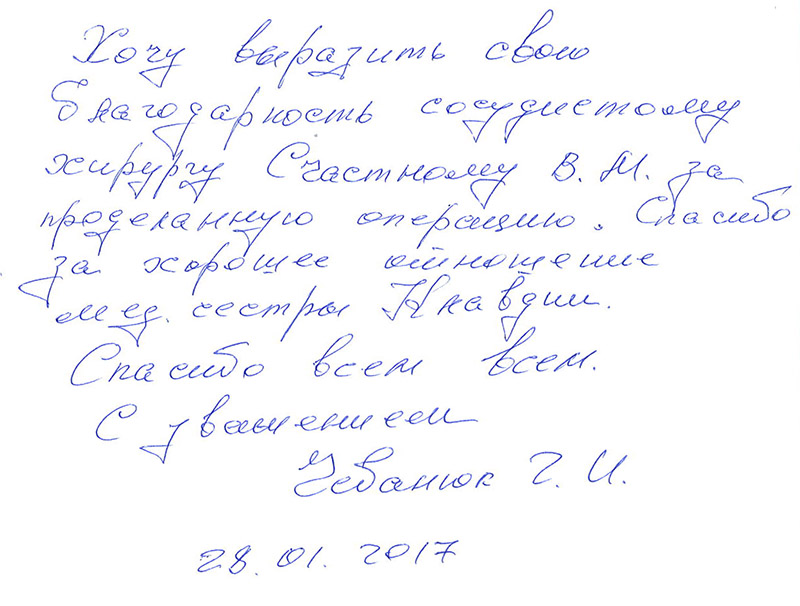 Хочу выразить свою
благодарность сосудистому
хирургу Счастному В. М. за
проделанную операцию. Спасибо
за хорошее отношение
мед. сестры
Спасибо всем всем.
С уважением
Чебанюк Г. И.
28.01. 2017